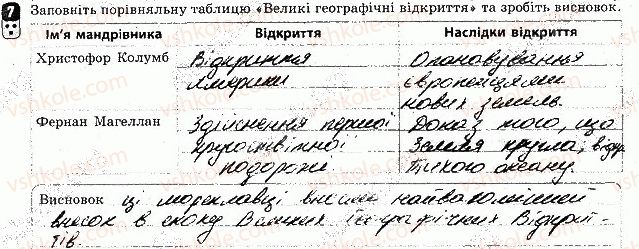 7 Заповніть порівняльну таблицю «Великі географічні відкриття» та зробіть висновок.
Ім'я мандрівника Відкриття Наслідки відкриття
Христофор Колумб Відкриття Опановування
Америки європейцями
нових земель.
Фернан Магеллан Здійснення першої Доказ того, що
кругосвітньої Земля кругла, відкр.
подорожі Тихого океану.
Висновок ці мореплавці внесли найвагоміший
внесок в епоху Великих географічних Відкрит-
тів.